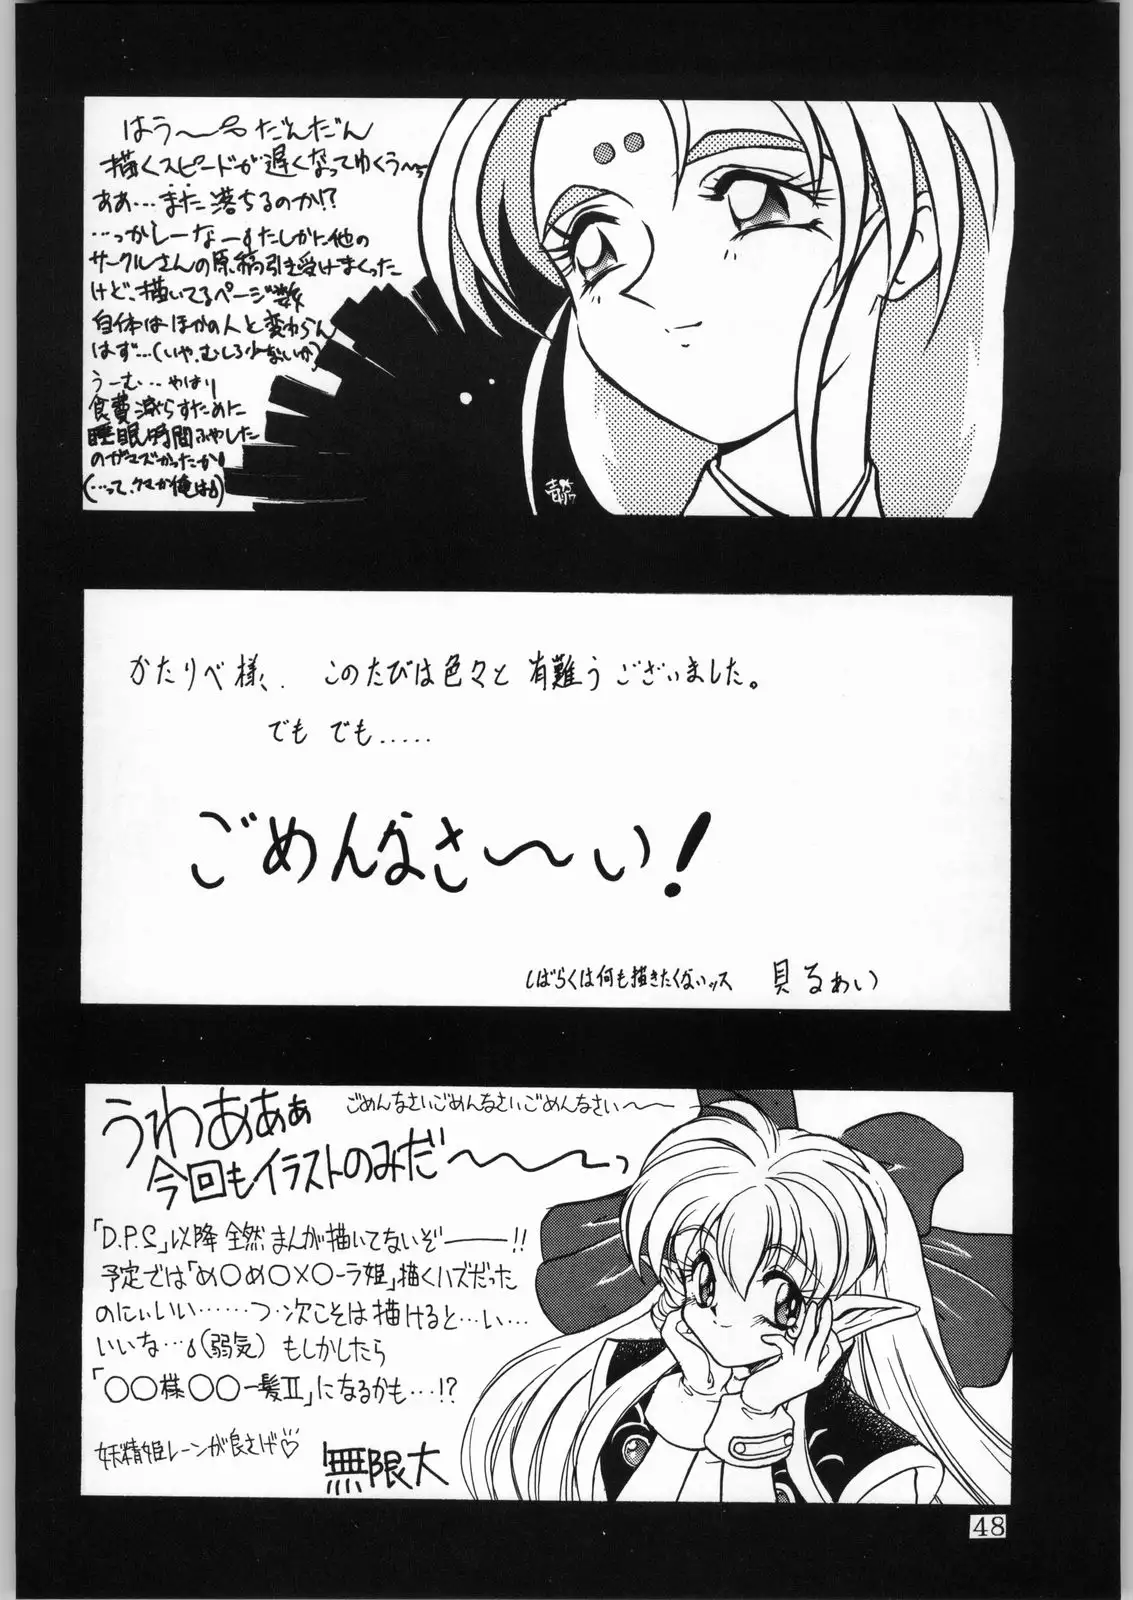 はう〜 だんだん
描くスピードが遅くなってゆくう〜
ああ…また落ちるのか!?
…っかしーなーすたしかに他の
サークルさんの原稿引き受けまくった
けど、描いてるページ数
自体はほかの人と変わらん
はず…(いや、むしろ少ないか)
うーむ…やはり
食費減らすために
睡眠時間ふやした
のがマズかったか
(…って、クマか俺は)
かたりべ様、. このたびは色々と 有難うございました。
でも でも.....
ごめんなさ〜い!
しばらくは何も描きたくないッス 貝るぁい
うわあああぁ ごめんなさいごめんなさいごめんなさい〜
今回もイラストのみだ〜〜っ
「D.P.S」以降 全然まんが描いてないぞ――!!
予定では「め○め○×○ーラ姫」描くハズだった
のにぃいい……つ・次こそは描けると…い…
いいな…(弱気) もしかしたら
「○○様○○一髪Ⅱ」になるかも…!?
妖精姫レーンが良さげ♡ 無限大
48